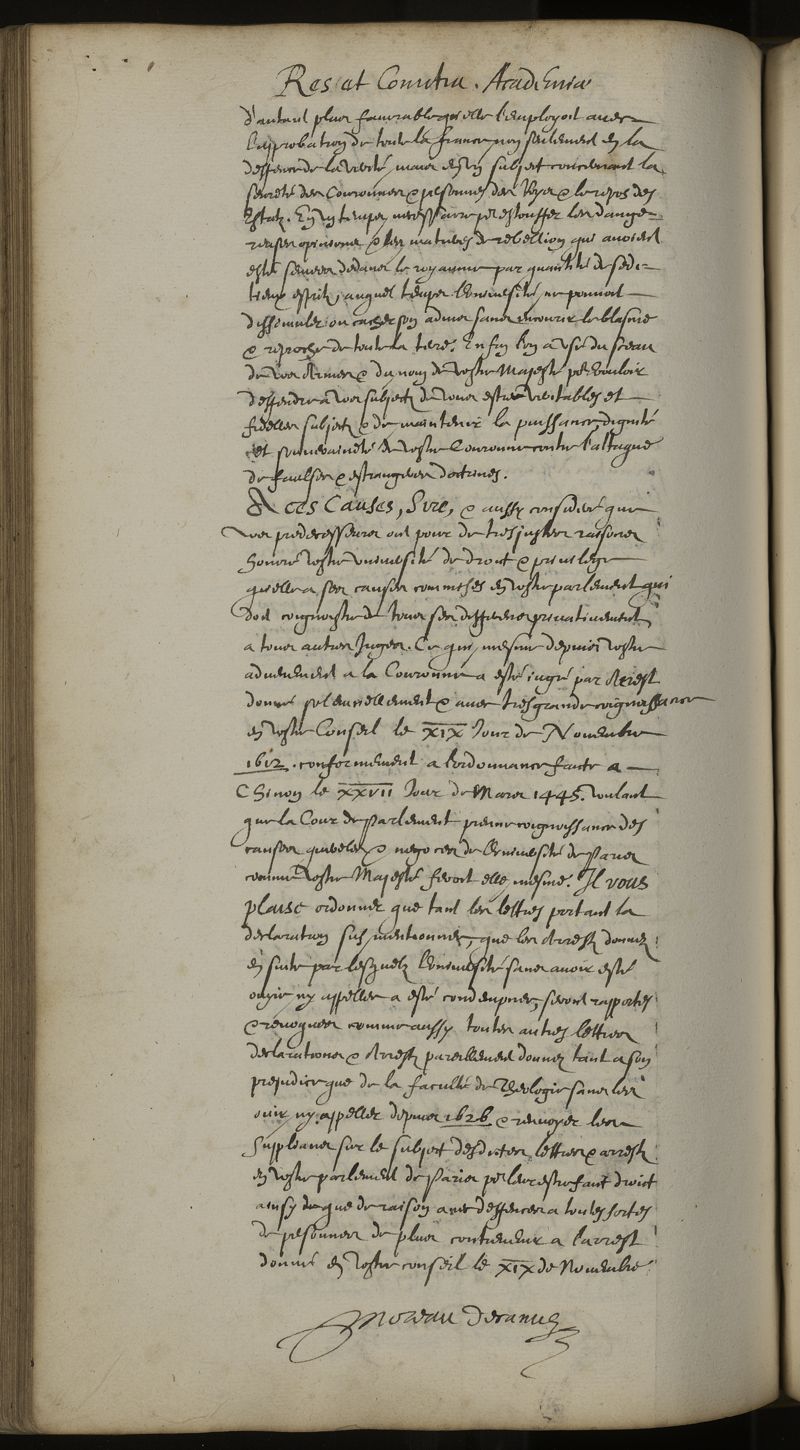 Res et Comitia Academiæ
d'autant plus favorable qu'elle l'employoit avec
l'approbation de toute la france non seulement en la
deffence de la verité, mais en un subject concernant la
seureté des Couronnes & personnes des Roys & le repos des
Estatz. En un temps necessaire pr estouffer les dange-
reuses opinions & les matieres de rebellion qui avoient
esté semees dedans le royaume par quantité de sedi-
tieux espritz, auquel temps l'université ne pouvoit
dissimuler ou cacher son advis sans encourir le blasme
& reproche de toute la terre. Enfin l'on a usé du sceau
de vos Armes & du nom de vostre Majesté pr vouloir
deffendre a vos subjectz de vous estre veritables et
fidelles subjectz & de maintenir la puissance, dignité
et souveraineté de vostre Couronne contre l'attaque
de faulses & estrangeres doctrines.
A ces Causes, Sire, & aussy consideré que
vos predecesseurs ont pour de tres justes raisons
honoré vostre université de droict & privilege
qu'elle a ses causes commises en vostre parlement qui
doit cognoistre de tous ses differens privativement
a tous autres Juges. Ce qui mesme depuis vostre
advenement a la Couronne a esté jugé par Arrest
donné solennellement & avec tres grande cognoissance
en vostre Conseil le XIX Jour de Novembre
1612. conformement a l'ordonnance faicte a
Chinon le XXVII Jour de Mars 1445. voulant
que la Cour de Parlement prenne cognoissance des
causes querelles & negoces de l'université de Paris
comme vostre Majesté feroit elle mesme. Il vous
plaise ordonner que tant les lettres portant la
declaration sus mentionnee, que les Arrestz donnez
en suite par lesquelz l'université sans avoir esté
ouye ny appellee a esté condempnee, seront rapportes
& revoquees comme aussy toutes autres lettres
declarations & Arrestz pareillement donnez tant a son
prejudice que de la faculté de Theologie sans les
ouir ny appeller depuis 1626 & renvoyer les
Supplians sur le subject desdictes lettres & arrestz
en vostre parlement de Paris pr leur estre faict droict
ainsy que de raison avec deffences a toutes sortes
de personnes de plus contrevenir a l'arrest
donné en vostre conseil le XIX de Novembre